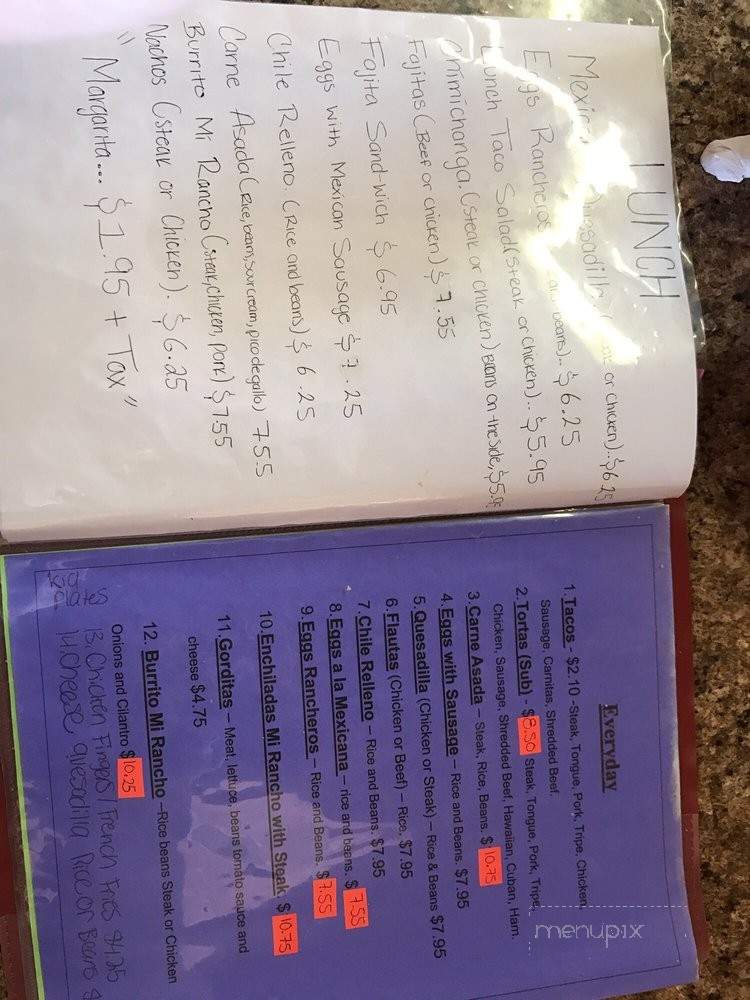 LUNCH
or chicken)..$6.25
Eggs Rancheros beans).. $6.25
Lunch Taco Salad(Steak or chicken).. $5.95
Chimichanga.(Steak or chicken) Beans on the side,
Fajitas (Beef or chicken) $7.55
Fajita Sand-wich $6.95
Eggs with Mexican Sausage $7.25
Chile Relleno. (Rice and beans) $6.25
Carne Asada (Rice, beans, sour cream, pico de gallo) 7.55
Burrito Mi Rancho (steak, chicken, pork) $7.55
Nachos (steak or chicken). $6.25
" Margarita... $1.95 + Tax "
Everyday
1.Tacos - $2.10 -Steak, Tongue, Pork, Tripe, Chicken,
Sausage, Carnitas, Shredded Beef.
2.Tortas (Sub) - $8.50 Steak, Tongue, Pork, Tripe,
Chicken, Sausage, Shredded Beef, Hawaiian, Cuban, Ham.
3.Carne Asada – Steak, Rice, Beans. $10.75
4.Eggs with Sausage – Rice and Beans. $7.95
5.Quesadilla (Chicken or Steak) – Rice & Beans $7.95
6.Flautas (Chicken or Beef) – Rice. $7.95
7.Chile Relleno – Rice and Beans. $7.95
8.Eggs a la Mexicana – rice and beans. $7.55
9.Eggs Rancheros – Rice and Beans. $7.55
10.Enchiladas Mi Rancho with Steak $10.75
11.Gorditas – Meat, lettuce, beans tomato sauce and
cheese $4.75
12. Burrito Mi Rancho –Rice beans Steak or Chicken
Onions and Cilantro $10.25
13. Chicken Fingers / French Fries $4.25
14.Cheese quesadilla Rice or Beans $
menupix